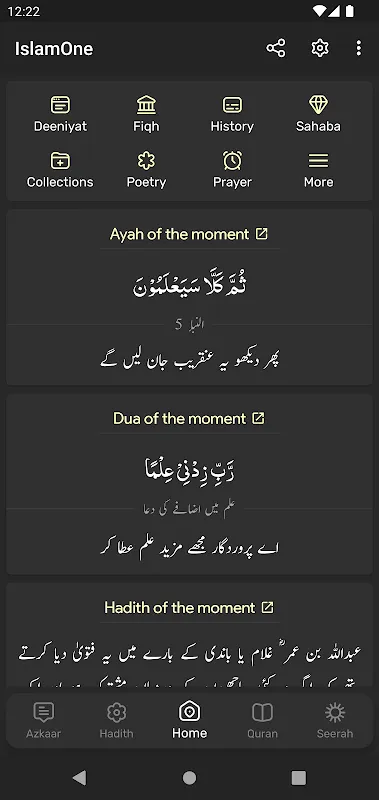 12:22
IslamOne
Deeniyat Fiqh History Sahaba
Collections Poetry Prayer More
Ayah of the moment
ثُمَّ كَلَّا سَيَعْلَمُوْنَ
النبإ 5
پھر دیکھو یہ عنقریب جان لیں گے
Dua of the moment
رَّبِّ زِدْنِيْ عِلْمًا
علم میں اضافے کی دعا
اے پروردگار مجھے مزید علم عطا کر
Hadith of the moment
عبداللہ بن عمر ؓ غلام یا باندی کے بارے میں یہ فتویٰ دیا کرتے
Azkaar Hadith Home Quran Seerah